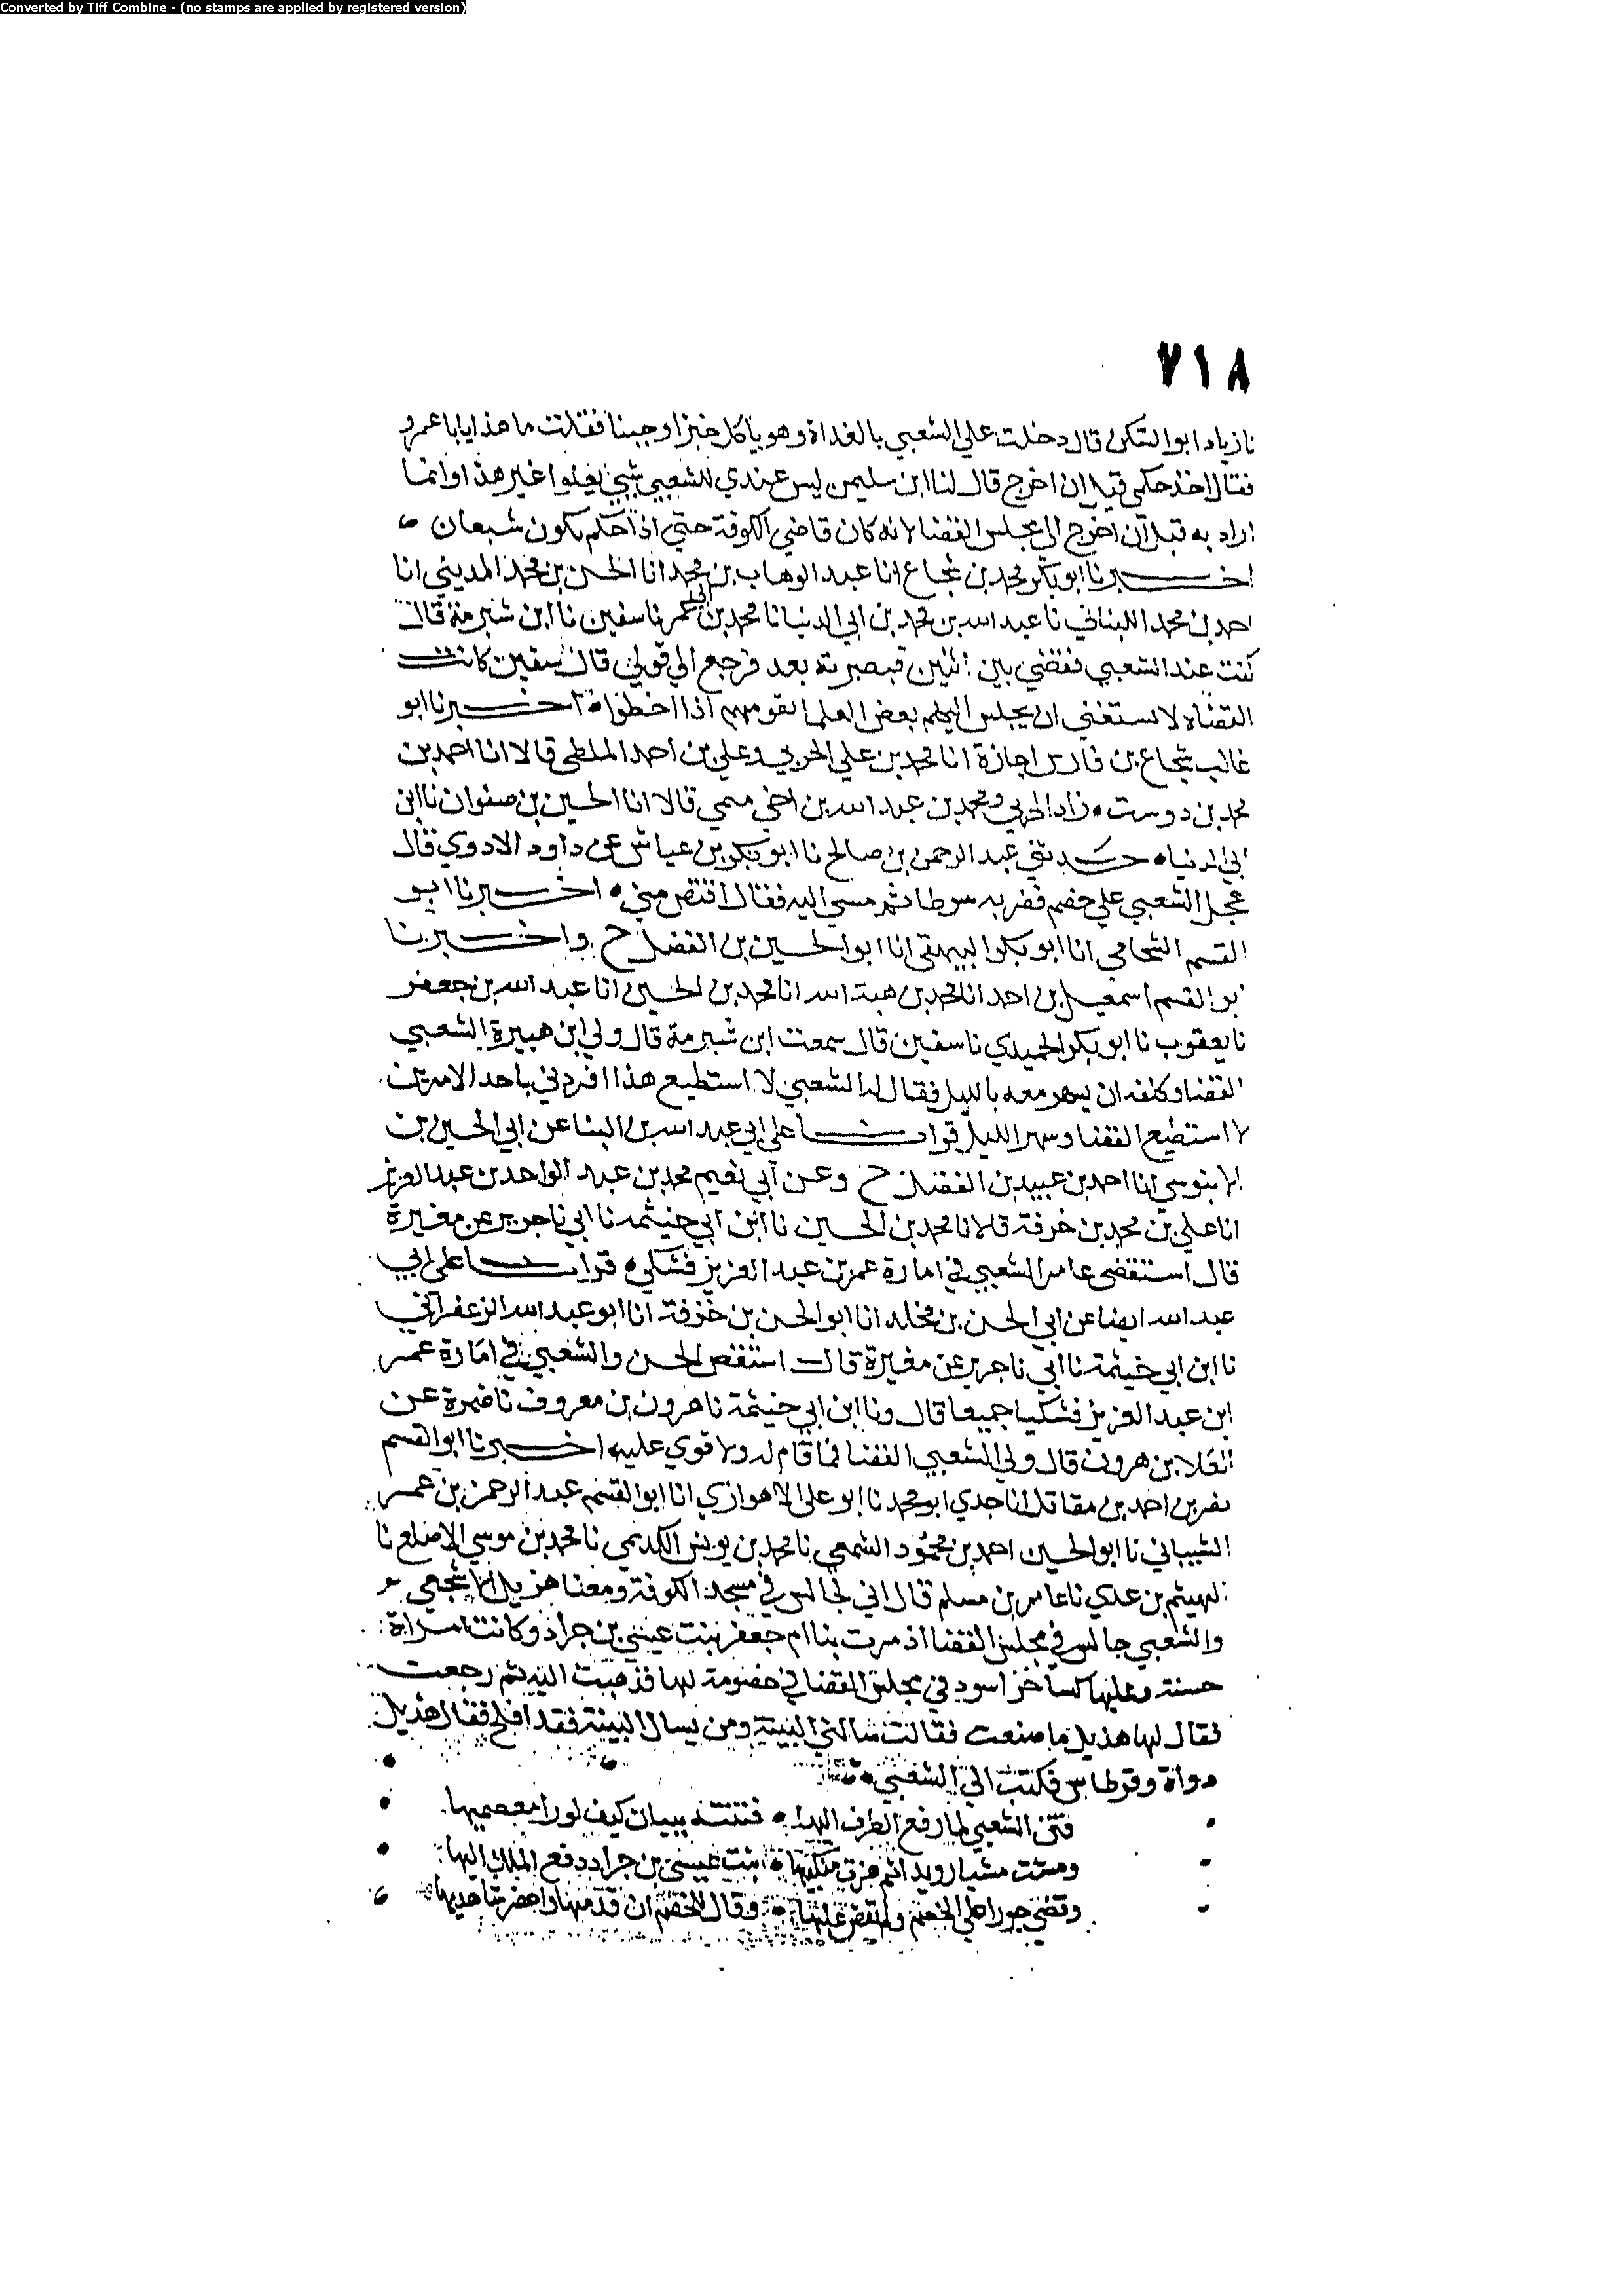 Converted by Tiff Combine - (no stamps are applied by registered version)
٧١٨
نا زياد ابو السكن قال دخلت علي الشعبي بالغداة وهو ياكل خبزا وجبنا فقلت ما هذا يابا عمرو
فقال اخذ حكمي قبل ان اخرج قال لنا ابن سليمن ليس عندي للشعبي شيئ يعلوا غير هذا وانما
اراد به قبل ان اخرج الي مجلس القضا لانه كان قاضي الكوفة حتي اذا حكم يكون شبعان
اخبرنا ابو بكر محمد بن شجاع انا عبد الوهاب بن محمد انا الحسن بن محمد المديني انا
احمد بن محمد اللبناني نا عبد الله بن محمد بن ابي الدنيا نا محمد بن ابي عمر نا سفين نا ابن شبرمة قال
كنت عند الشعبي فقضي بين اثنين فبصرته بعد فرجع الي قولي قال سفين كانت
القضاه لا تستغني ان يجلس اليهم بعض العلما يقومهم اذا اخطوا اخبرنا ابو
غالب شجاع بن فارس اجازة انا محمد بن علي الحربي وعلي بن احمد الملطي قالا انا احمد بن
محمد بن دوست زاد الحربي ومحمد بن عبد الله بن اخي ميمي قالا انا الحسين بن صفوان نا ابن
ابي الدنيا حدثني عبد الرحمن بن صالح نا ابو بكر بن عياش عن داود الاودي قال
عجل الشعبي علي خصم فضربه سوطا ثم مسي اليه فقال اقتص مني اخبرنا ابو
القسم الشحامي انا ابو بكر البيهقي انا ابو الحسين بن الفضل ح واخبرنا
ابو القسم اسمعيل بن احمد انا محمد بن هبة الله انا محمد بن الحسين انا عبد الله بن جعفر
نا يعقوب نا ابو بكر الحميدي نا سفين قال سمعت ابن شبرمة قال ولي ابن هبيرة الشعبي
القضا وكلفه ان يسهر معه بالليل فقال له الشعبي لا استطيع هذا افردني باحد الامرين
لا استطيع القضا وسهر الليل قرات علي ابي عبد الله بن البنا عن ابي الحسين بن
الابنوسي انا احمد بن عبيد بن الفضل ح وعن ابي نعيم محمد بن عبد الواحد بن عبد العزيز
انا علي بن محمد بن خزفة قالا نا محمد بن الحسين نا ابن ابي خيثمة نا ابي نا جرير عن مغيرة
قال استقضي عامر الشعبي في امارة عمر بن عبد العزيز فشكي قرات علي ابي
عبد الله ايضا عن ابي الحسن بن مخلد انا ابو الحسن بن خزفة انا ابو عبد الله الزعفراني
نا ابن ابي خيثمة نا ابي نا جرير عن مغيرة قال استقضي الحسن والشعبي في امارة عمر
ابن عبد العزيز فشكيا جميعا قال ونا ابن ابي خيثمة نا هرون بن معروف نا ضمرة عن
العلا بن هرون قال ولي الشعبي القضا فما قام له ولا قوي عليه اخبرنا ابو القسم
نصر بن احمد بن مقاتل انا جدي ابو محمد نا ابو علي الاهوازي انا ابو القسم عبد الرحمن بن عمر
الشيباني نا ابو الحسين احمد بن محمود الشمعي نا محمد بن يونس الكديمي نا محمد بن موسي الاصلع نا
الهيثم بن عدي نا عامر بن مسلم قال اني لجالس في مسجد الكوفة ومعنا هذيل الاشجعي
والشعبي جالس في مجلس القضا اذ مرت بنا ام جعفر بنت عيسي بن جراد وكانت امراة
حسنة وعليها كسا خز اسود في مجلس القضا في خصومة لها فذهبت اليه ثم رجعت
فقال لها هذيل ما صنعت فقالت سالني البينة ومن يسال البينة فقد افلح فقال هذيل
دواة وقرطاس فكتب الي الشعبي
فتن الشعبي لما رفع الطرف اليها فتنته ببيان كيف لو را معصميها
ومشت مشيا رويدا ثم هزت منكبيها بنت عيسي بن جراد دفع الملك اليها
وقضي جورا علي الخصم ولم يقض عليها وقال للخصم ان قدمنها واحضر شاهديها